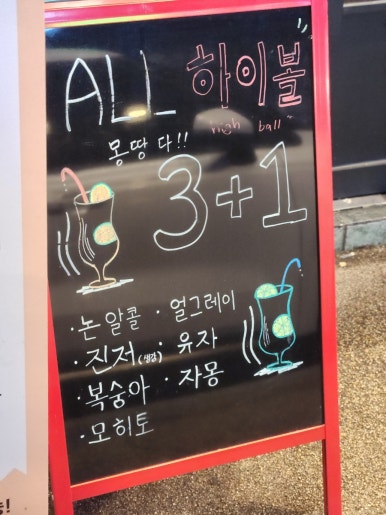 ALL 하이볼
high ball
몽땅 다!!
3+1
· 논 알콜 · 얼그레이
· 진저 (생강) · 유자
· 복숭아 · 자몽
· 모히토